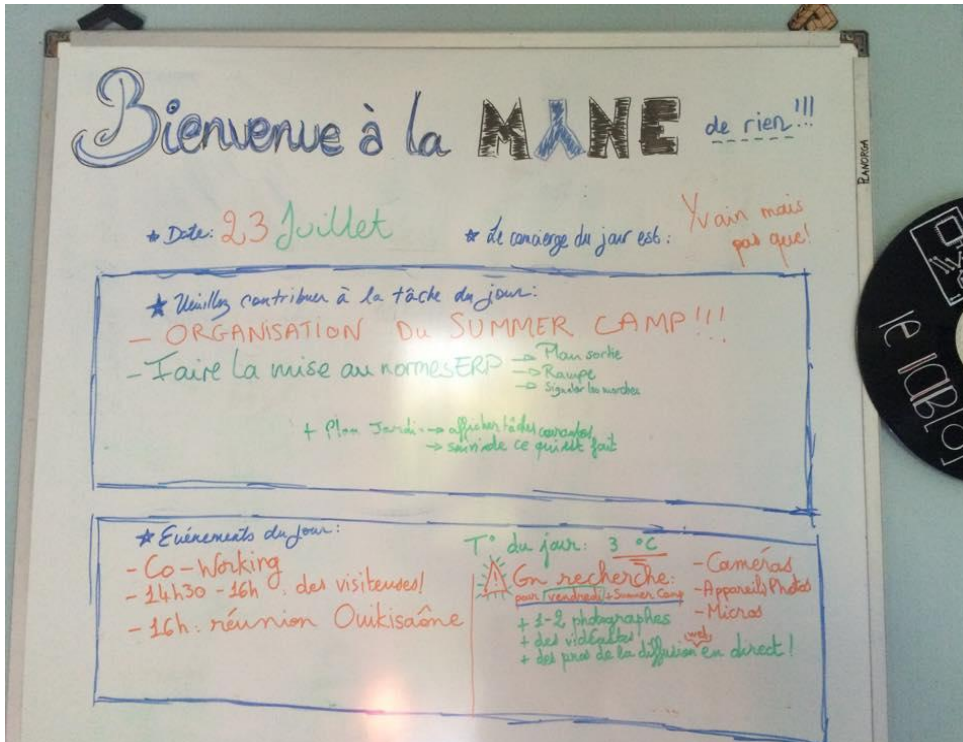 Bienvenue à la MINE de rien!!!
PLANORGA
★ Date: 23 Juillet
★ Le concierge du jour est: Yvain mais
pas que!
★ Veuillez contribuer à la tâche du jour:
- ORGANISATION DU SUMMER CAMP!!!
- Faire la mise au normes ERP → Plan sortie
→ Rampe
→ Signaler les marches
+ Plan Jardin → afficher tâches courantes
→ suivi de ce qui est fait
★ Evénements du jour:
- Co-Working
- 14h30 - 16h : des visiteuses!
- 16h: réunion Ouikisaône
T° du jour: 3 °C
⚠ On recherche:
pour vendredi + Summer Camp
+ 1-2 photographes
+ des vidéastes
+ des pros de la diffusion web en direct!
- Caméras
- Appareils Photos
- Micros
le